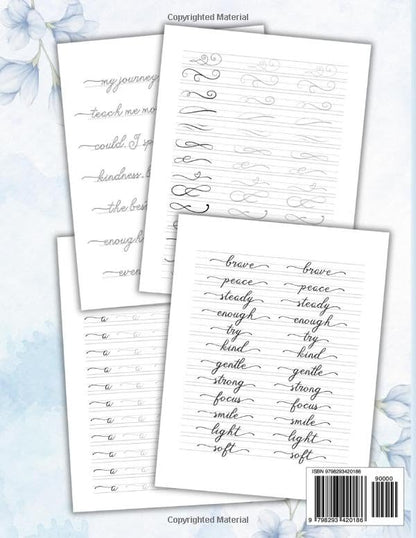 Copyrighted Material
my journey
teach me mo
could. I sp
kindness, b
the bes
enough
even
brave brave
peace peace
steady steady
enough enough
try try
kind kind
gentle gentle
strong strong
focus focus
smile smile
light light
soft soft
a a a a
a a a a
a a a a
a a a a
a a a a
a a a a
a a a a
a a a a
a a a a
a a a a
a a a a
a a a a
ISBN 9798293420186
90000
9 798293 420186
Copyrighted Material